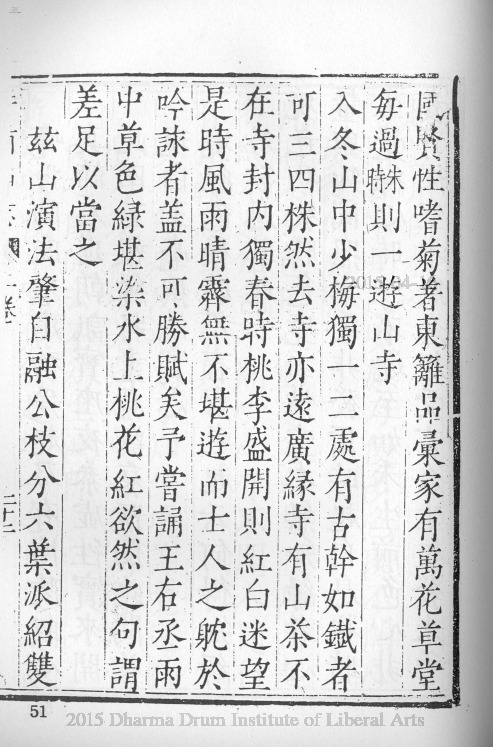 國賢性嗜菊著東籬品彚家有萬花草堂
每過時未則一遊山寺
入冬山中少梅獨一二處有古幹如鐵者
可三四株然去寺亦遠廣緣寺有山茶不
在寺封内獨春時桃李盛開則紅白迷望
是時風雨晴霽無不堪遊而士人之躭於
吟詠者盖不可勝賦矣予嘗誦王右丞雨
中草色綠堪染水上桃花紅欲然之句謂
差足以當之
兹山演法肇自融公枝分六葉派紹雙
卷
二十二
51
2015 Dharma Drum Institute of Liberal Arts